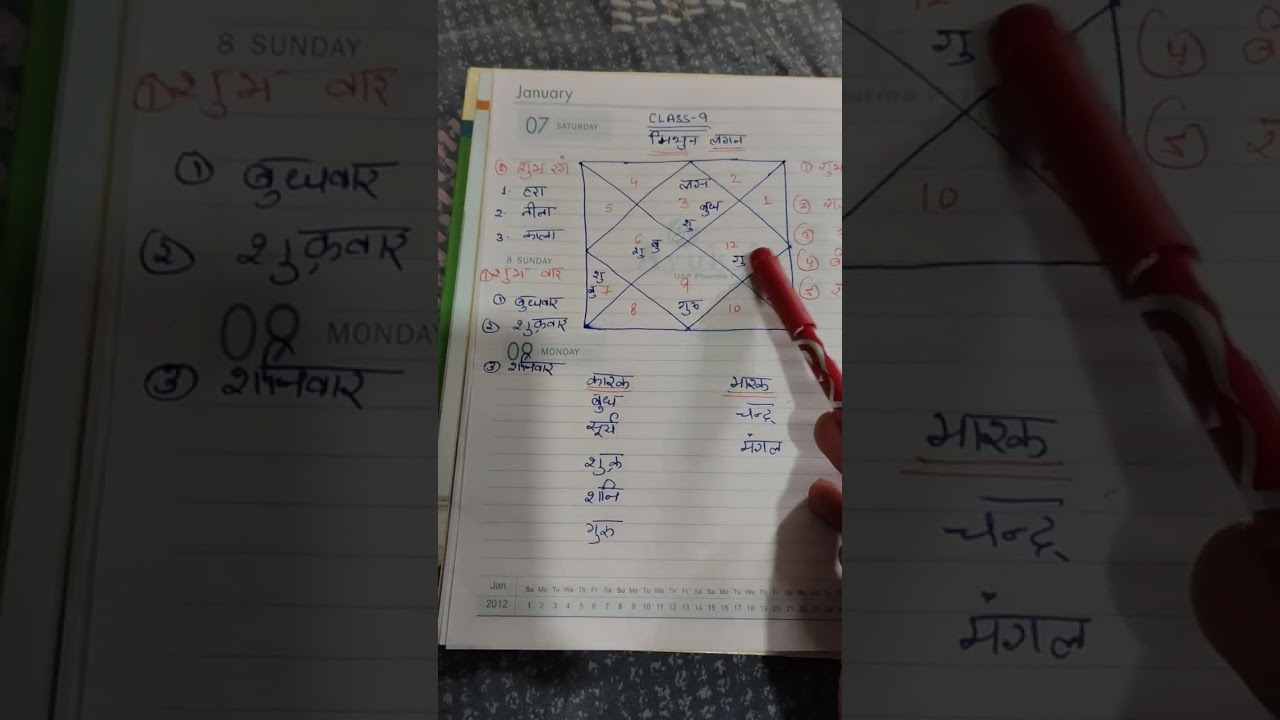 January
07 SATURDAY
CLASS-9
मिथुन लगन
③ शुभ रंग
1. हरा
2. नीला
3. काला
4 लगन 2
5 3 बुध 1
शु
6 12
शु बु गु
शु
बु 7 9
8 गुरु 10
① शु
②
③
④
⑤
8 SUNDAY
① शुभ वार
① बुधवार
② शुक्रवार
③ शनिवार
09 MONDAY
कारक मारक
बुध चन्द्र
सूर्य मंगल
शुक्र
शनि
गुरु
Jan Su Mo Tu We Th Fr Sa Su Mo Tu We Th Fr Sa Su Mo Tu We Th Fr Sa
2012 1 2 3 4 5 6 7 8 9 10 11 12 13 14 15 16 17 18 19 20 21